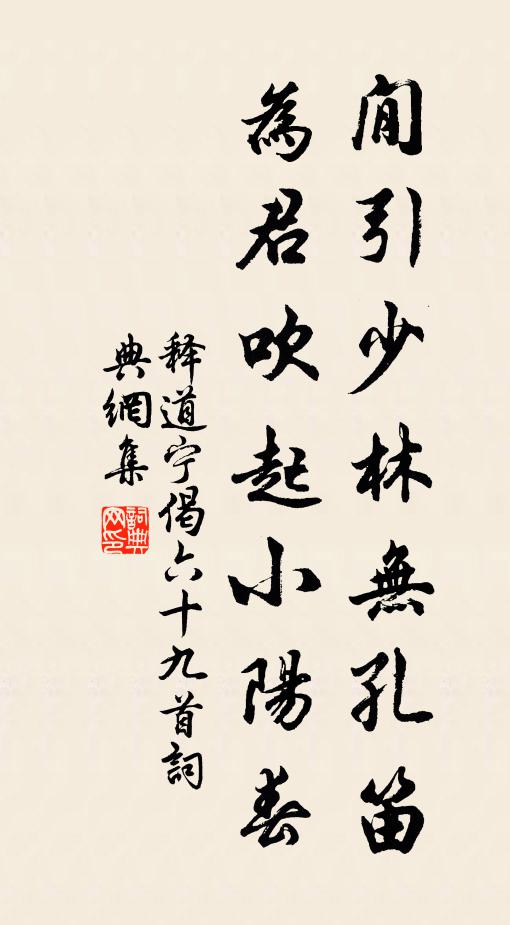 閒引少林無孔笛
為君吹起小陽春
释道宁偈六十九首詞
典網集
詞典
网印